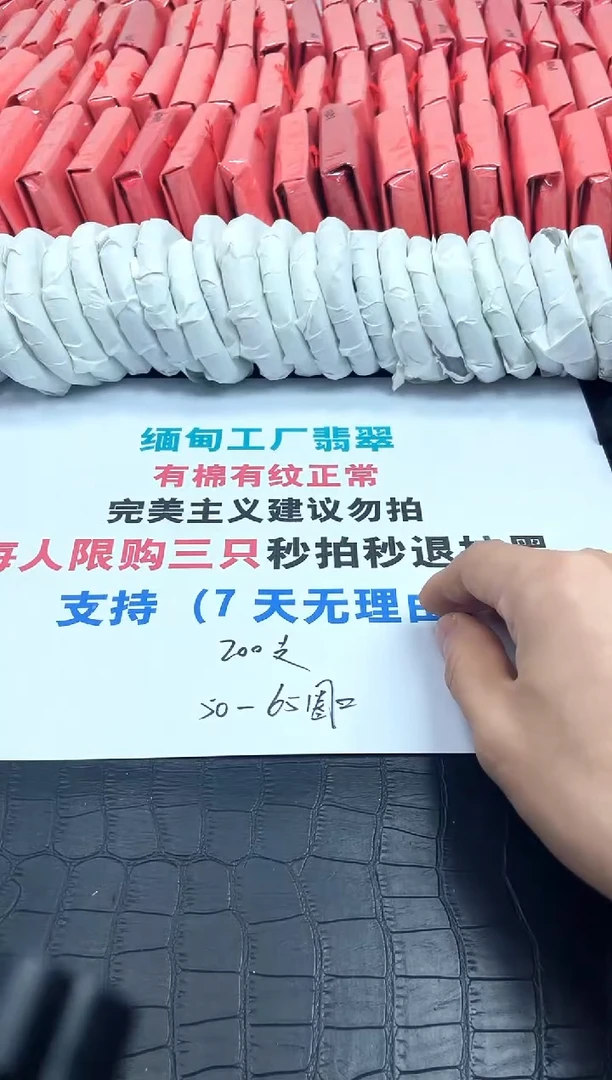 缅甸工厂翡翠
有棉有纹正常
完美主义建议勿拍
每人限购三只秒拍秒退拉黑
支持（7天无理由
200支
50-65圈口